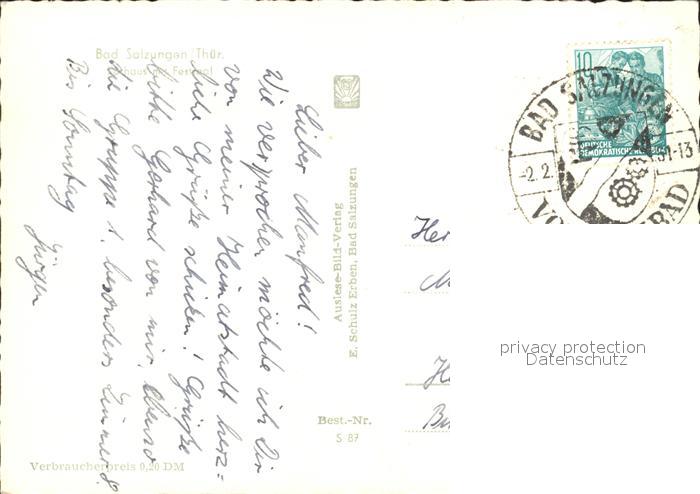 Bad Salzungen Thür.
Lieber Manfred!
Wie versprochen möchte ich Dir
von meiner Heimatstadt herz=
liche Grüße schicken! Grüße
bitte Gerhard von mir, ebenso
die Gruppe 1, besonders Zimmer 8.
Bis Sonntag
Jürgen
Auslese-Bild-Verlag
E. Schulz Erben, Bad Salzungen
Best.-Nr.
S 87
Verbraucherpreis 0,20 DM
10
DEUTSCHE
DEMOKRATISCHE
BAD SALZUNGEN
-2.2.
-13
BAD
Her
M
privacy protection
Datenschutz